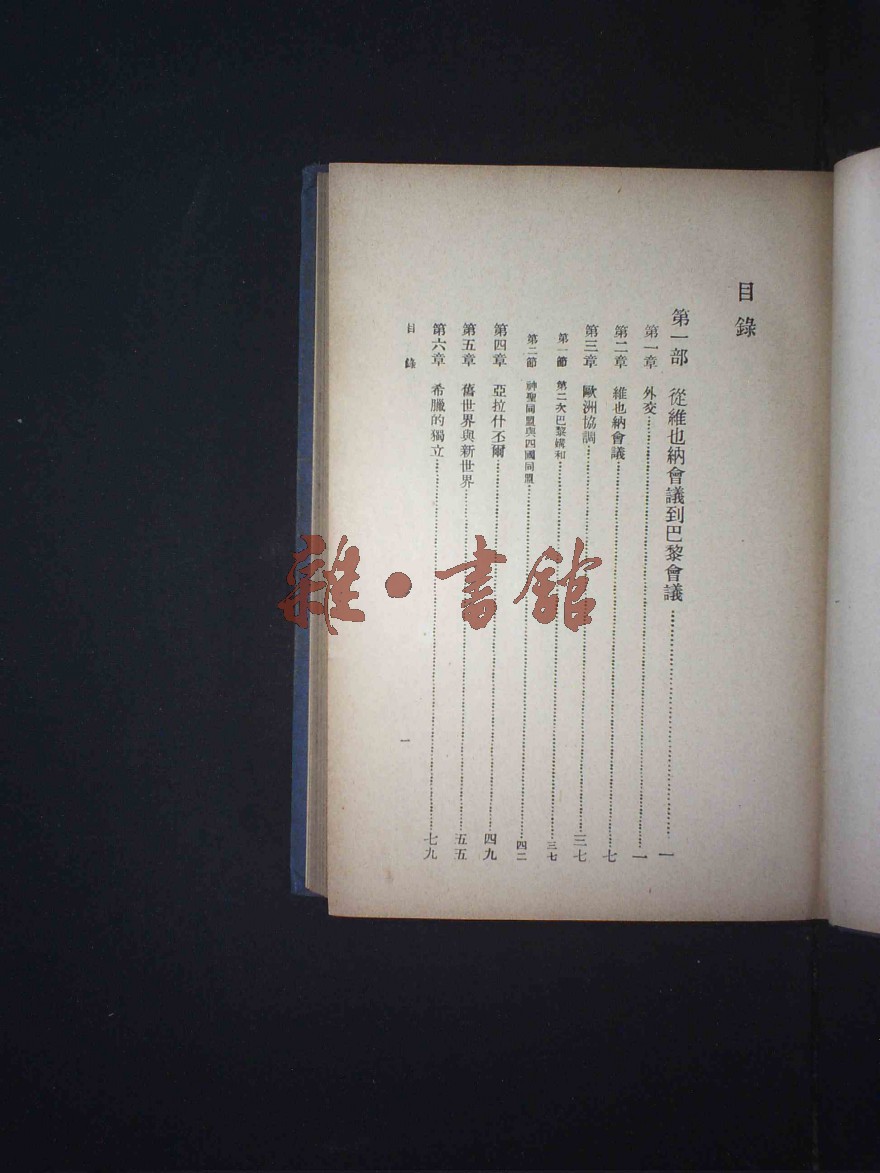 目錄
第一部 從維也納會議到巴黎會議……………………一
第一章 外交……………………一
第二章 維也納會議……………………七
第三章 歐洲協調……………………三七
第一節 第二次巴黎媾和……………………三七
第二節 神聖同盟與四國同盟……………………四二
第四章 亞拉什丕爾……………………四九
第五章 舊世界與新世界……………………五五
第六章 希臘的獨立……………………七九
目錄
一
雜·書館